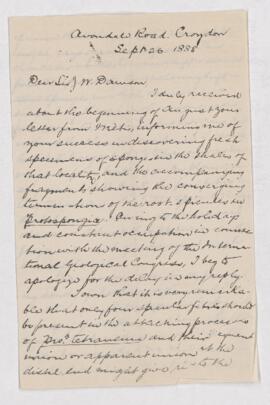 Avondale Road, Croydon
Sept 26. 1888
Dear Sir J W. Dawson
I duly received
about the beginning of August your
letter from Metis, informing me of
your success in discovering fresh
specimens of sponges in the shales of
that locality, and the accompanying
fragments showing the converging
termination of the root-spicules in
Protospongia. Owing to the holidays
and constant occupation in connec
tion with the meeting of the Interna
tional Geological Congress, I beg to
apologize for the delay in my reply.
I own that it is very
that only four spicules should
be present in the attaching processes
of Pro. tetranema and their
union or apparent union at the
distal end might give rise to the